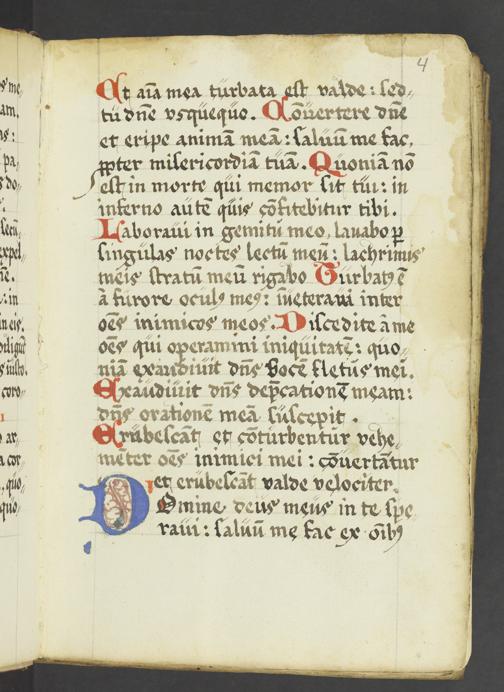 4
Et aīa mea turbata est valde: sed
tu dñe vsquequo. Cōuertere dñe
et eripe animam meā: saluū me fac,
ꝓpter misericordiā tuā. Quoniā nō
est in morte qui memor sit tui: in
inferno autē quis cōfitebitur tibi.
Laboraui in gemitu meo, lauabo ꝑ
singulas noctes lectū meū: lachrimis
meis stratū meū rigabo Turbatꝰ ē
ā furore oculꝰ meꝰ: īueteraui inter
oēs inimicos meos. Discedite ā me
oēs qui operamini iniquitatē: quo
niā exaudiuit dñs vocē fletus mei.
Exaudiuit dñs dep̄cationē meam:
dñs orationē meā suscepit.
Erubescāt et cōturbentur vehe
mēter oēs inimici mei: cōuertātur
et erubescāt valde velociter.
Domine deus meus in te spe
raui: saluū me fac ex oībꝰ